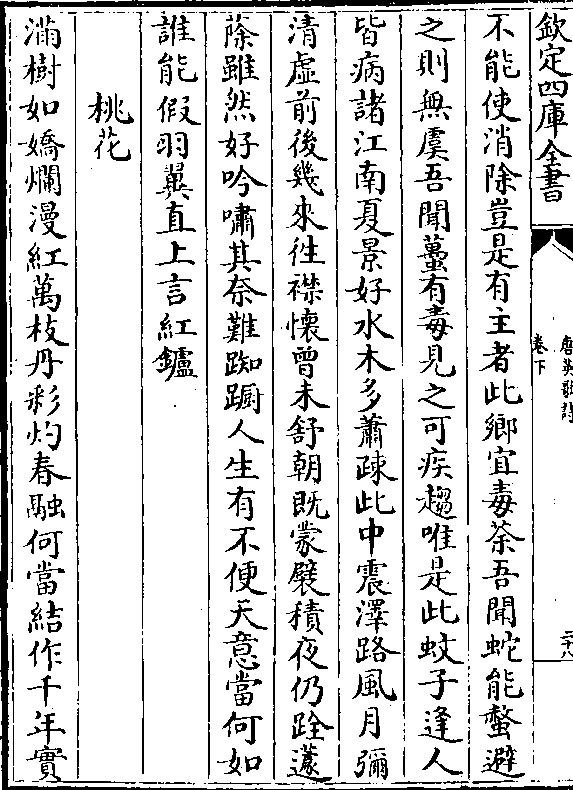 欽定四庫全書
唐英歌詩
卷下
二十八
不能使消除豈是有主者此鄉宜毒荼吾聞蛇能螫避
之則無虞吾聞蠆有毒見之可疾趨唯是此蚊子逢人
皆病諸江南夏景好水木多蕭疎此中震澤路風月彌
清虛前後幾來徃襟懷曾未舒朝既蒙襞積夜仍跧蘧
蒢雖然好吟嘯其奈難踟蹰人生有不便天意當何如
誰能假羽翼直上言紅鑪
桃花
滿樹如嬌爛漫紅萬枝丹彩灼春融何當結作千年實